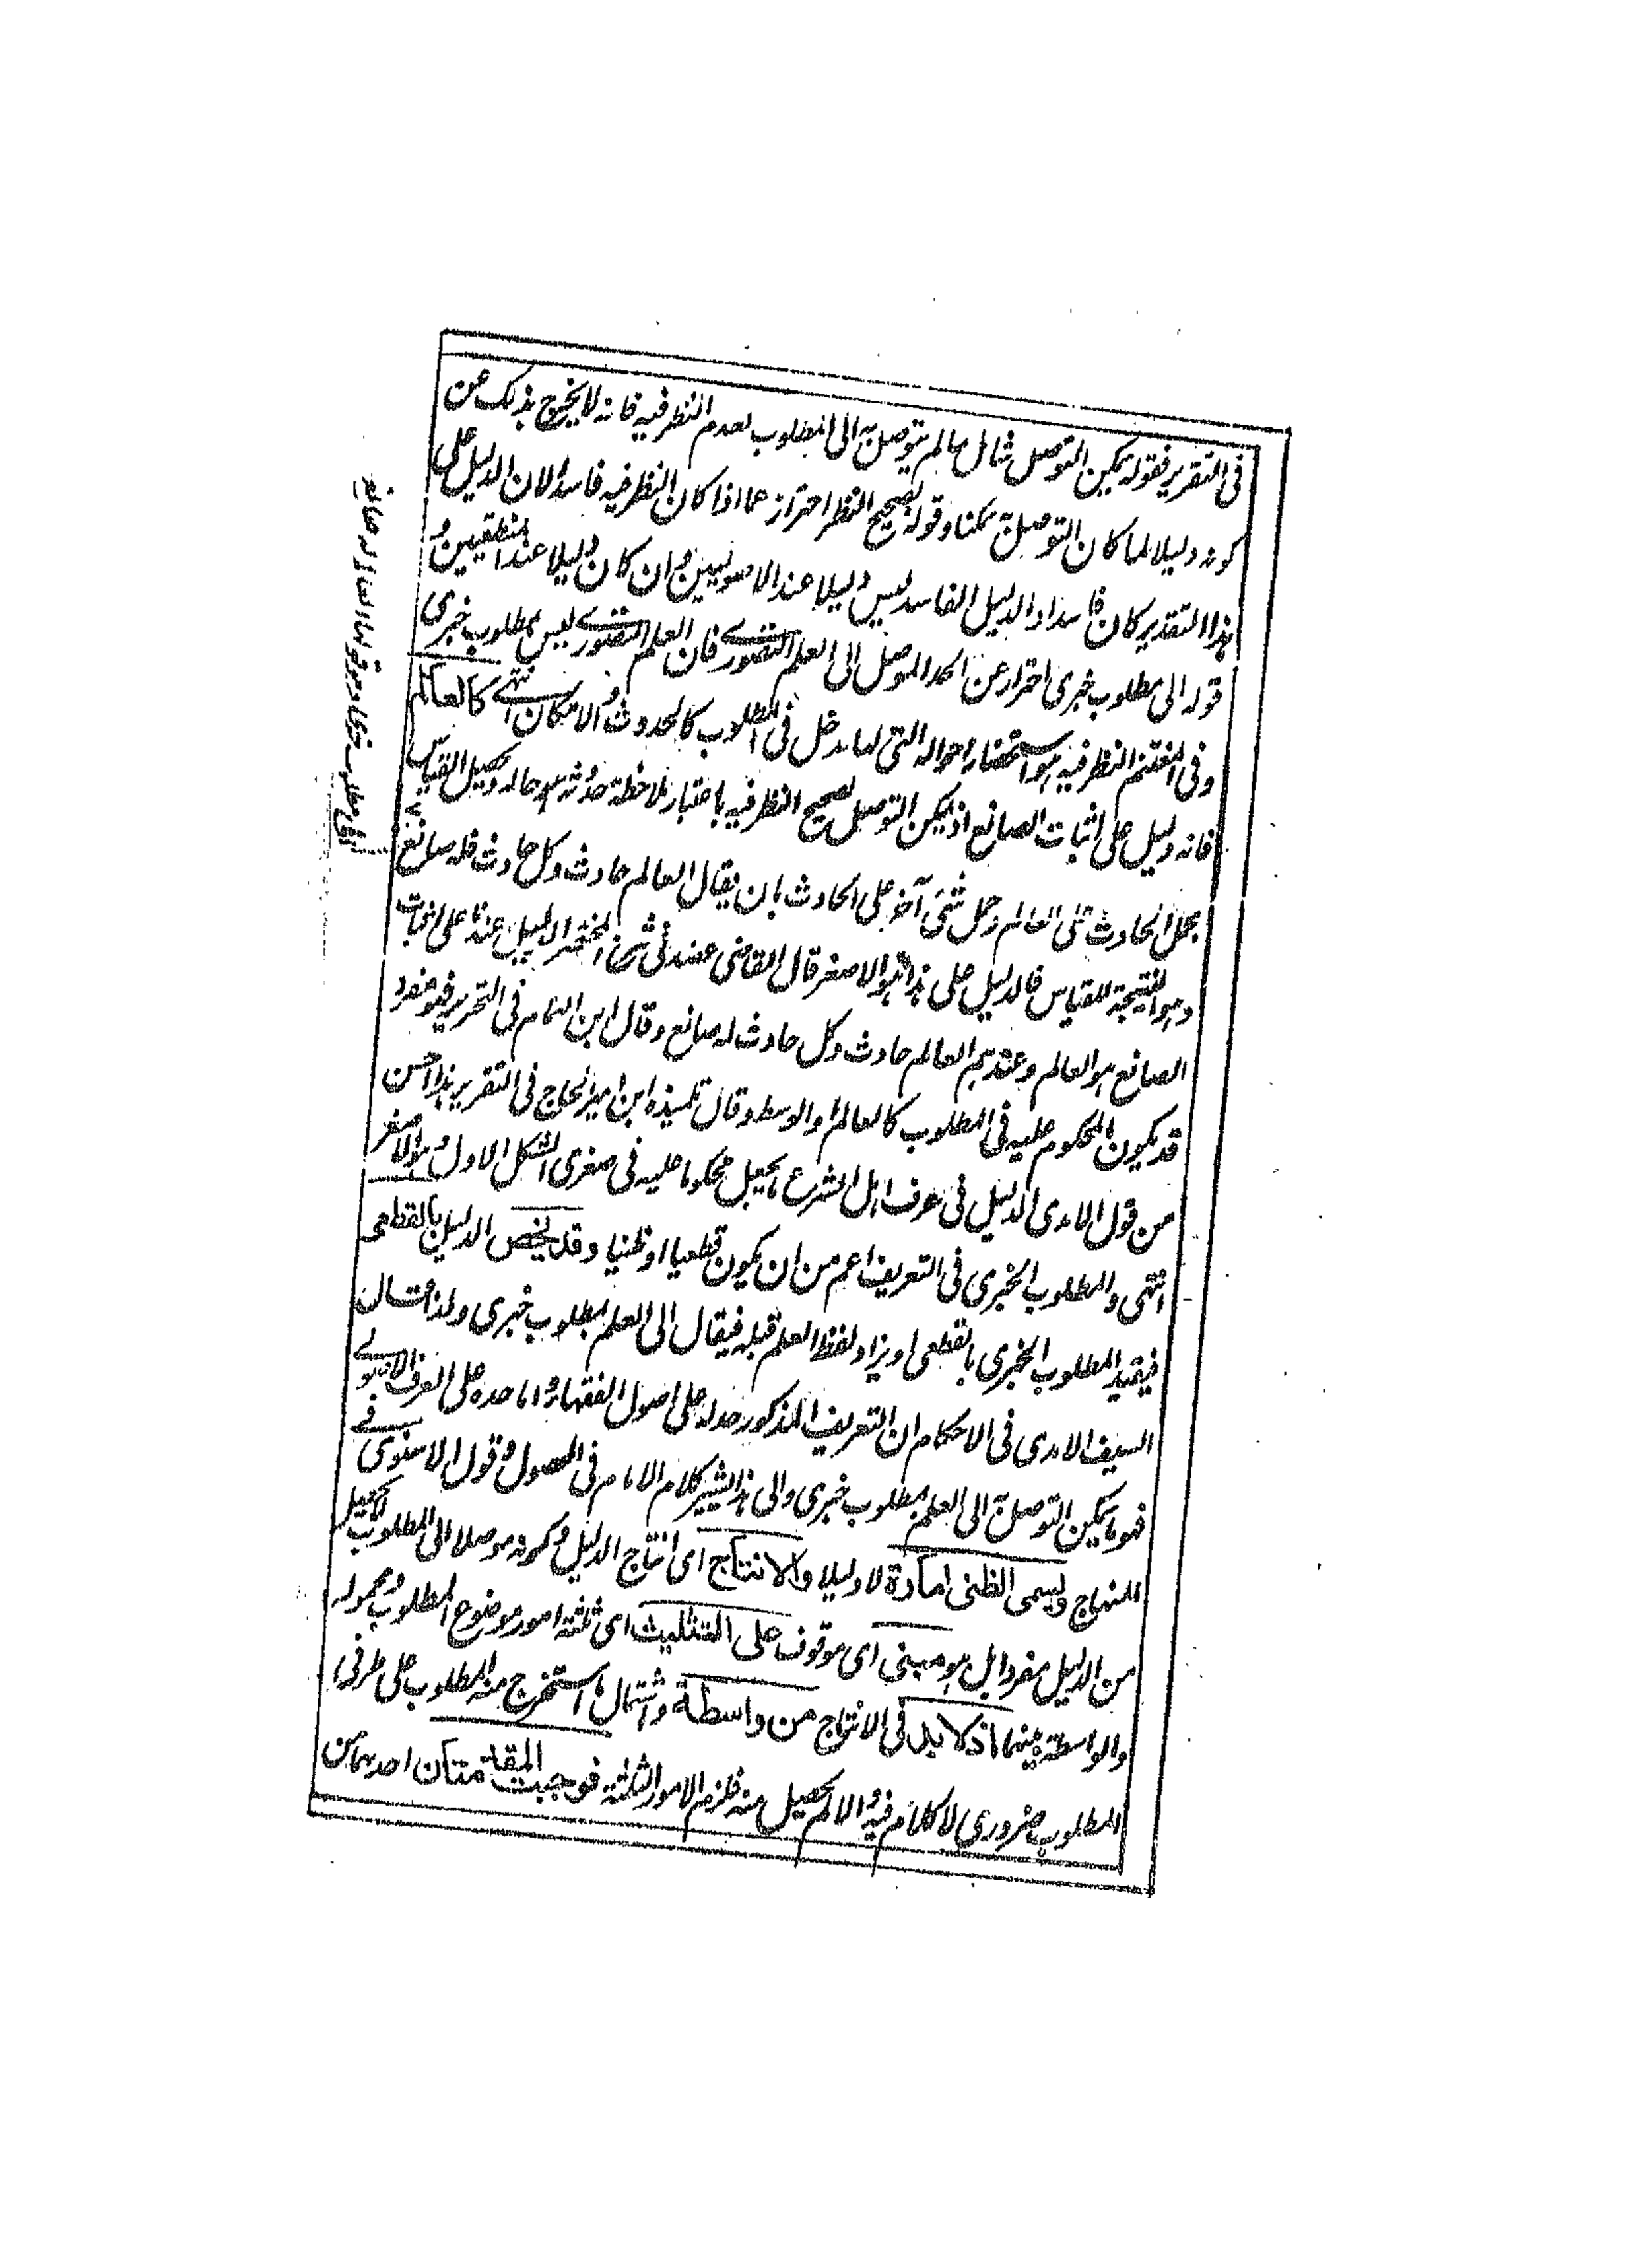 فى التقرير فقوله يمكن التوصل شامل مالم يتوصل به الى المطلوب لعدم النظر فيه فانه لا يخرج بذلك عن
كونه دليلا لما كان التوصل به ممكنا وقوله بصحيح النظر احتراز عما اذا كان النظر فيه فاسدا لان الدليل على
هذا التقدير كان فاسدا والدليل الفاسد ليس دليلا عند الاصوليين وان كان دليلا عند المنطقيين و
قوله الى مطلوب خبرى احتراز عن الحد الموصل الى العلم التصورے فان العلم التصورے ليس بمطلوب خبرى
وفى المغتنم النظر فيه هو استحضار احواله التى لها دخل فى المطلوب كالحدوث والامكان انتهے كالعالم
فانه دليل على اثبات الصانع اذ يمكن التوصل بصحيح النظر فيه باعتبار ملاحظة حدوثه هو حاله وتحصيل القياس
بحمل الحادث على العالم وحمل شئ آخر على الحادث بان يقال العالم حادث وكل حادث فله صانع
وهو النتيجة للقياس فالدليل على هذا هو الاصغر قال القاضى عضد فى شرح المختصر الدليل عندنا على اثبات
الصانع هو العالم وعندهم العالم حادث وكل حادث له صانع وقال ابن الهمام فى التحرير فهو مفرد
قد يكون المحكوم عليه فى المطلوب كالعالم او الوسط وقال تلميذه ابن امير الحاج فى التقرير هذا احسن
من قول الامدى الدليل فى عرف اهل الشرع ما يجعل محكوما عليه فى صغرى الشكل الاول وهو الاصغر
انتهى والمطلوب الخبرى فى التعريف اعم من ان يكون قطعيا او ظنيا وقد يخص الدليل بالقطعى
فيقيد المطلوب الخبرى بالقطعى او يزاد لفظ العلم قبله فيقال الى العلم بمطلوب خبرى ولذا قال
السيف الامدى فى الاحكام ان التعريف المذكور حد له على اصول الفقهاء واما حده على العرف الاصولے
فهو ما يمكن التوصل به الى العلم بمطلوب خبرى والى هذا يشير كلام الامام فى المحصول وقول الاسنوى فے
المنهاج ويسمى الظنى امارة لا دليلا والانتاج اى انتاج الدليل وكونه موصلا الى المطلوب كتحصيل
من الدليل مفردا بل هو مبنى اى موقوف على التثليث اى ثلثة امور موضوع المطلوب ومحموله
والواسطة بينهما اذ لا بد فى الانتاج من واسطة واشتمال ما استخرج منه المطلوب على طرفى
المطلوب ضرورى لا كلام فيه والا لم يحصل منه فلزم الامور الثلثة فوجبت المقدمتان احدهما من